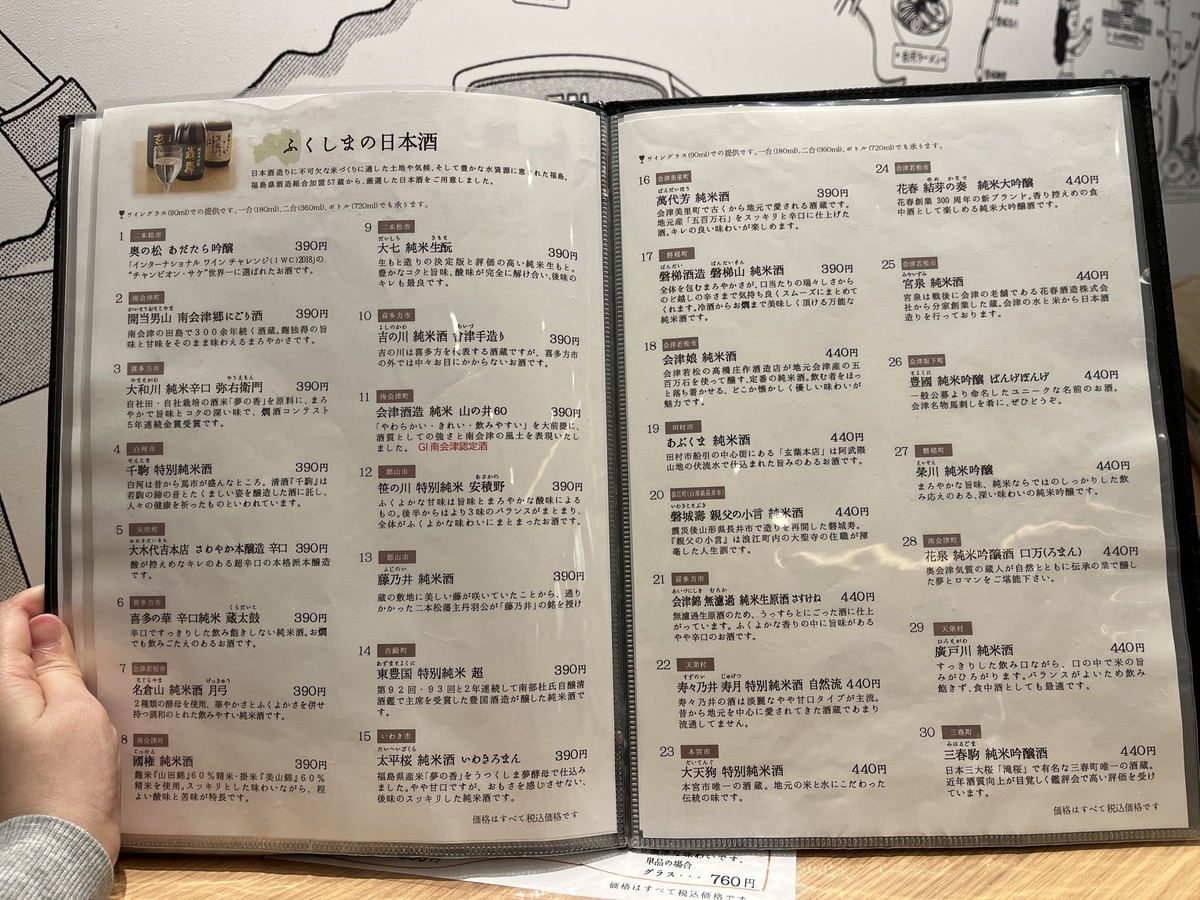 ふくしまの日本酒
日本酒造りに不可欠な米づくりに適した土地や気候、そして豊かな水資源に恵まれた福島。
福島県酒造組合加盟57蔵から、厳選した日本酒をご用意しました。
ワイングラス(90ml)での提供です。一合(180ml)、二合(360ml)、ボトル(720ml)でも承ります。
1 二本松市
奥の松 あだたら吟醸 390円
「インターナショナル ワイン チャレンジ(IWC)2018」の
“チャンピオン・サケ”世界一に選ばれたお酒です。
2 南会津町
かいとうおとこやま
開当男山 南会津郷にごり酒 390円
南会津の田島で300余年続く酒蔵。麹独得の旨
味と甘味をそのまま味わえるまろやかさです。
3 喜多方市
やまとがわ やうえもん
大和川 純米辛口 弥右衛門 390円
自社田・自社栽培の酒米「夢の香」を原料に、まろ
やかで旨味とコクの深い味で、燗酒コンテスト
5年連続金賞受賞です。
4 白河市
せんこま
千駒 特別純米酒 390円
白河は昔から馬市が盛んなところ。清酒『千駒』は
若駒の蹄の音とたくましい姿を醸造した酒に託し、
人々の健康を祈ったものといわれています。
5 矢吹町
おおきだいきち
大木代吉本店 さわやか本醸造 辛口 390円
酸が控えめなキレのある超辛口の本格派本醸造
です。
6 喜多方市
くらだいこ
喜多の華 辛口純米 蔵太鼓 390円
辛口ですっきりした飲み飽きしない純米酒。お燗
でも飲みごたえのあるお酒です。
7 会津若松市
なぐらやま げっきゅう
名倉山 純米酒 月弓 390円
2種類の酵母を使用、華やかさとふくよかさを併せ
持つ調和のとれた飲みやすい純米酒です。
8 南会津町
こっけん
國権 純米酒 390円
麹米『山田錦』60%精米・掛米『美山錦』60%
精米を使用。スッキリとした味わいながら、程
よい酸味と苦味が特長です。
9 二本松市
だいしち きもと
大七 純米生酛 390円
生もと造りの決定版と評価の高い純米生もと。
豊かなコクと旨味、酸味が完全に解け合い、後味の
キレも最良です。
10 喜多方市
よしのかわ あいづ
吉の川 純米酒 会津手造り 390円
吉の川は喜多方を代表する酒蔵ですが、喜多方市
の外では中々お目にかからないお酒です。
11 南会津町
会津酒造 純米 山の井60 390円
「やわらかい・きれい・飲みやすい」を大前提に、
酒質としての強さと南会津の風土を表現いたし
ました。 GI南会津認定酒
12 郡山市
あさかの
笹の川 特別純米 安積野 390円
ふくよかな甘味は旨味とまろやかな酸味による
もの。後半からはより3味のバランスがまとまり、
全体がふくよかな味わいにまとまったお酒です。
13 郡山市
ふじのい
藤乃井 純米酒 390円
蔵の敷地に美しい藤が咲いていたことから、通り
かかった二本松藩主丹羽公が「藤乃井」の銘を授け
14 古殿町
あずまとよくに
東豊国 特別純米 超 390円
第92回・93回と2年連続して南部杜氏自醸清
酒鑑で主席を受賞した豊国酒造が醸した純米酒で
す。
15 いわき市
たいへいざくら
太平桜 純米酒 いわきろまん 390円
福島県産米「夢の香」をうつくしま夢酵母で仕込み
ました。やや甘口ですが、おもさを感じさせない、
後味のスッキリした純米酒です。
価格はすべて税込価格です
ワイングラス(90ml)での提供です。一合(180ml)、二合(360ml)、ボトル(720ml)でも承ります。
16 会津美里町
ばんだいほう
萬代芳 純米酒 390円
会津美里町で古くから地元で愛される酒蔵です。
地元産「五百万石」をスッキリと辛口に仕上げた
酒。キレの良い味わいが楽しめます。
17 磐梯町
ばんだい ばんだいさん
磐梯酒造 磐梯山 純米酒 390円
全体を包むまろやかさが、口当たりの瑞々しさから
のど越しの辛さまで気持ち良くスムーズにまとめて
くれます。冷酒からお燗まで美味しく頂ける万能な
純米酒です。
18 会津若松市
会津娘 純米酒 440円
会津若松の高橋庄作酒造店が地元会津産の五
百万石を使って醸す、定番の純米酒。飲む者をほっ
と落ち着かせる、どこか懐かしく優しい味わいが
魅力です。
19 田村市
あぶくま 純米酒 440円
田村市船引の中心街にある「玄葉本店」は阿武隈
山地の伏流水で仕込まれた旨みのあるお酒です。
20 浪江町(山形県長井市)
いわきことぶき
磐城壽 親父の小言 純米酒 440円
震災後山形県長井市で造りを再開した磐城寿。
『親父の小言』は浪江町内の大聖寺の住職が揮
毫した人生訓です。
21 喜多方市
あいづにしき むろか
会津錦 無濾過 純米生原酒 さすけね 440円
無濾過生原酒のため、うっすらとにごった酒に仕上
がっています。ふくよかな香りの中に旨味がある
やや辛口のお酒です。
22 天栄村
すずのい じゅげつ
寿々乃井 寿月 特別純米酒 自然流 440円
寿々乃井の酒は淡麗なやや甘口タイプが主流。
昔から地元を中心に愛されてきた酒蔵であまり
流通してません。
23 本宮市
だいてんぐ
大天狗 特別純米酒 440円
本宮市唯一の酒蔵。地元の米と水にこだわった
伝統の味です。
24 会津若松市
ゆめ かなで
花春 結芽の奏 純米大吟醸 440円
花春創業 300 周年の新ブランド。香り控えめの食
中酒として楽しめる純米大吟醸酒です。
25 会津若松市
みやいずみ
宮泉 純米酒 440円
宮泉は戦後に会津の老舗である花春酒造株式会
社から分家創業した蔵。会津の水と米から日本酒
造りを行っております。
26 会津坂下町
とよくに
豊國 純米吟醸 ばんげぼんげ 440円
一般公募より命名したユニークな名前のお酒。
会津名物馬刺しを肴に、ぜひどうぞ。
27 磐梯町
えいせん
榮川 純米吟醸 440円
まろやかな旨味、純米ならではのしっかりした飲
み応えのある、深い味わいの純米吟醸です。
28 南会津町
花泉 純米吟醸酒 口万(ろまん) 440円
奥会津気質の蔵人が自然とともに伝承の業で醸し
た夢とロマンをご堪能下さい。
29 天栄村
ひろとがわ
廣戸川 純米酒 440円
すっきりした飲み口ながら、口の中で米の旨
みがひろがります。バランスがよいため飲み
飽きず、食中酒としても最適です。
30 三春町
みはるごま
三春駒 純米吟醸酒 440円
日本三大桜「滝桜」で有名な三春町唯一の酒蔵。
近年酒質向上が目覚しく鑑評会で高い評価を受け
ています。
価格はすべて税込価格です
味わいです。
単品の場合
グラス・・・ 760円
価格はすべて税込価格です